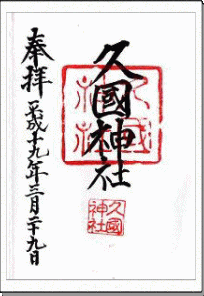 奉拝
久國神社
久國神社
久國神社
平成十九年三月二十九日